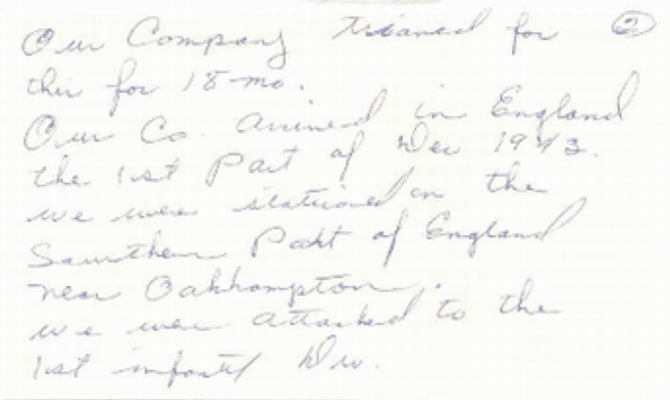 Our Company trained for ②
this for 18 mo.
Our Co. arrived in England
the 1st Part of Dec 1943.
we were stationed on the
Southern Part of England
near Oakhampton.
we were attached to the
1st infantry Div.